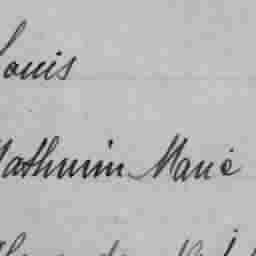 Louis
Mathurin Marie